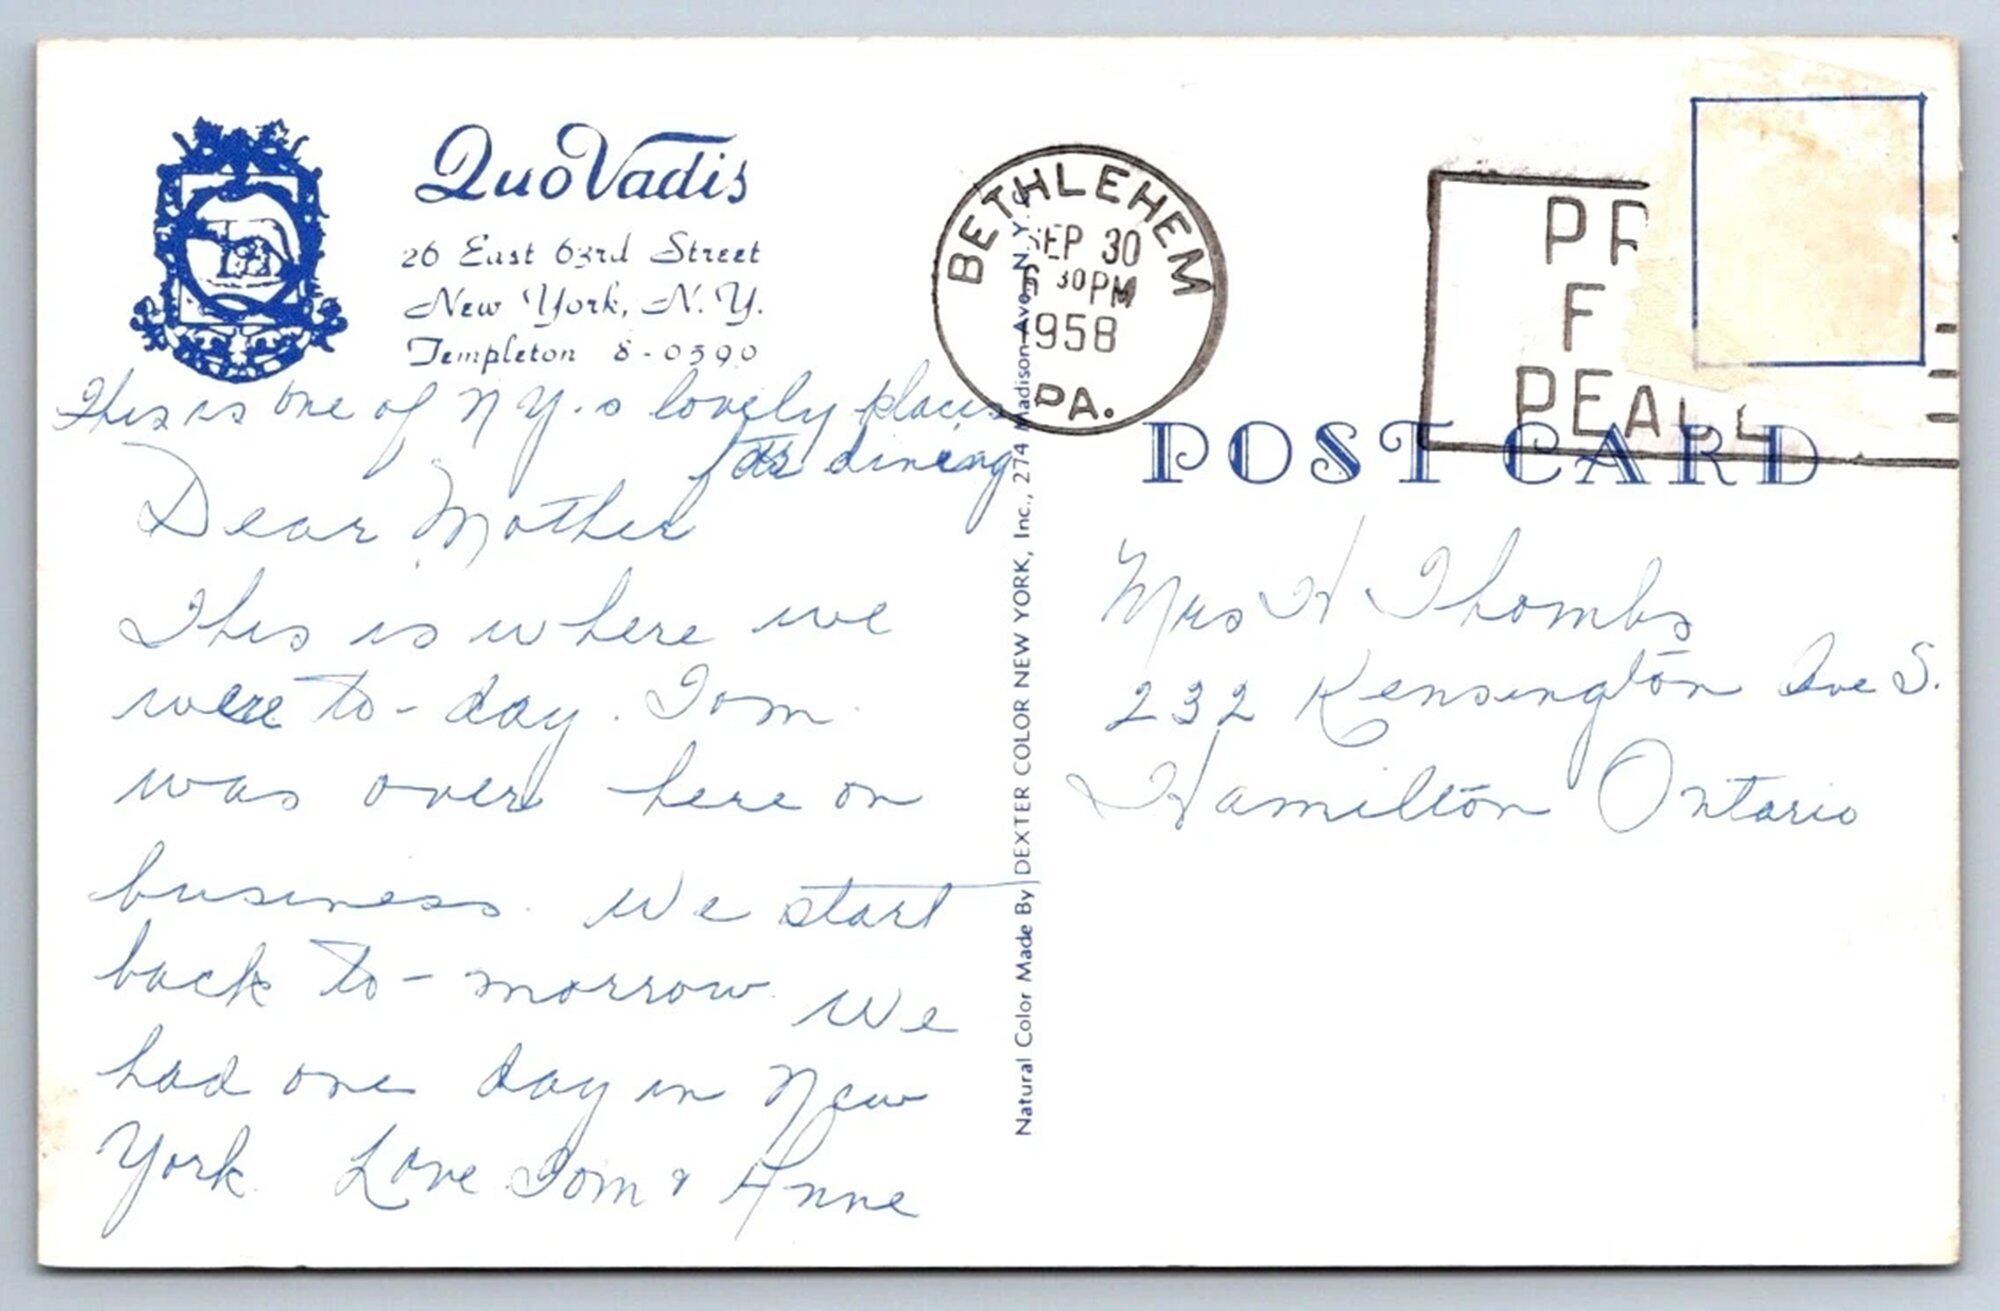 Quo Vadis
26 East 63rd Street
New York, N. Y.
Templeton 8-0590
This is one of N Y.s lovely places
for dining
Dear Mother
This is where we
were to-day. Tom
was over here on
business. We start
back to-morrow. We
had one day in New
York. Love Tom & Anne
Natural Color Made By DEXTER COLOR NEW YORK, Inc., 274 Madison Ave., N. Y. C.
BETHLEHEM
SEP 30
6 30 PM
1958
PA.
POST CARD
Mrs H Thombs
232 Kensington Ave S.
Hamilton Ontario